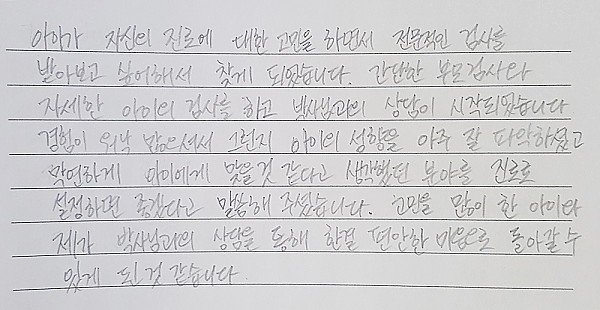 아이가 자신의 진로에 대한 고민을 하면서 전문적인 검사를
받아보고 싶어해서 찾게 되었습니다. 간단한 부모검사와
자세한 아이의 검사를 하고 박사님과의 상담이 시작되었습니다
경험이 워낙 많으셔서 그런지 아이의 성향을 아주 잘 파악하셨고
막연하게 아이에게 맞을것 같다고 생각했던 분야를 진로로
설정하면 좋겠다고 말씀해 주셨습니다. 고민을 많이 한 아이와
제가 박사님과의 상담을 통해 한결 편안한 마음으로 돌아갈 수
있게 된 것 같습니다